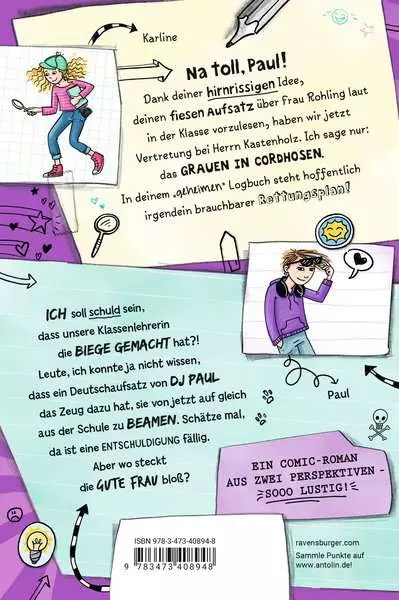 Karline
Na toll, Paul!
Dank deiner hirnrissigen Idee,
deinen fiesen Aufsatz über Frau Rohling laut
in der Klasse vorzulesen, haben wir jetzt
Vertretung bei Herrn Kastenholz. Ich sage nur:
das GRAUEN IN CORDHOSEN.
In deinem „geheimen“ Logbuch steht hoffentlich
irgendein brauchbarer Rettungsplan!
ICH soll schuld sein,
dass unsere Klassenlehrerin
die BIEGE GEMACHT hat?!
Leute, ich konnte ja nicht wissen,
dass ein Deutschaufsatz von DJ PAUL
das Zeug dazu hat, sie von jetzt auf gleich
aus der Schule zu BEAMEN. Schätze mal,
da ist eine ENTSCHULDIGUNG fällig.
Aber wo steckt
die GUTE FRAU bloß?
Paul
EIN COMIC-ROMAN
AUS ZWEI PERSPEKTIVEN -
SOOO LUSTIG!
ISBN 978-3-473-40894-8
9 783473 408948
ravensburger.com
Sammle Punkte auf
www.antolin.de!